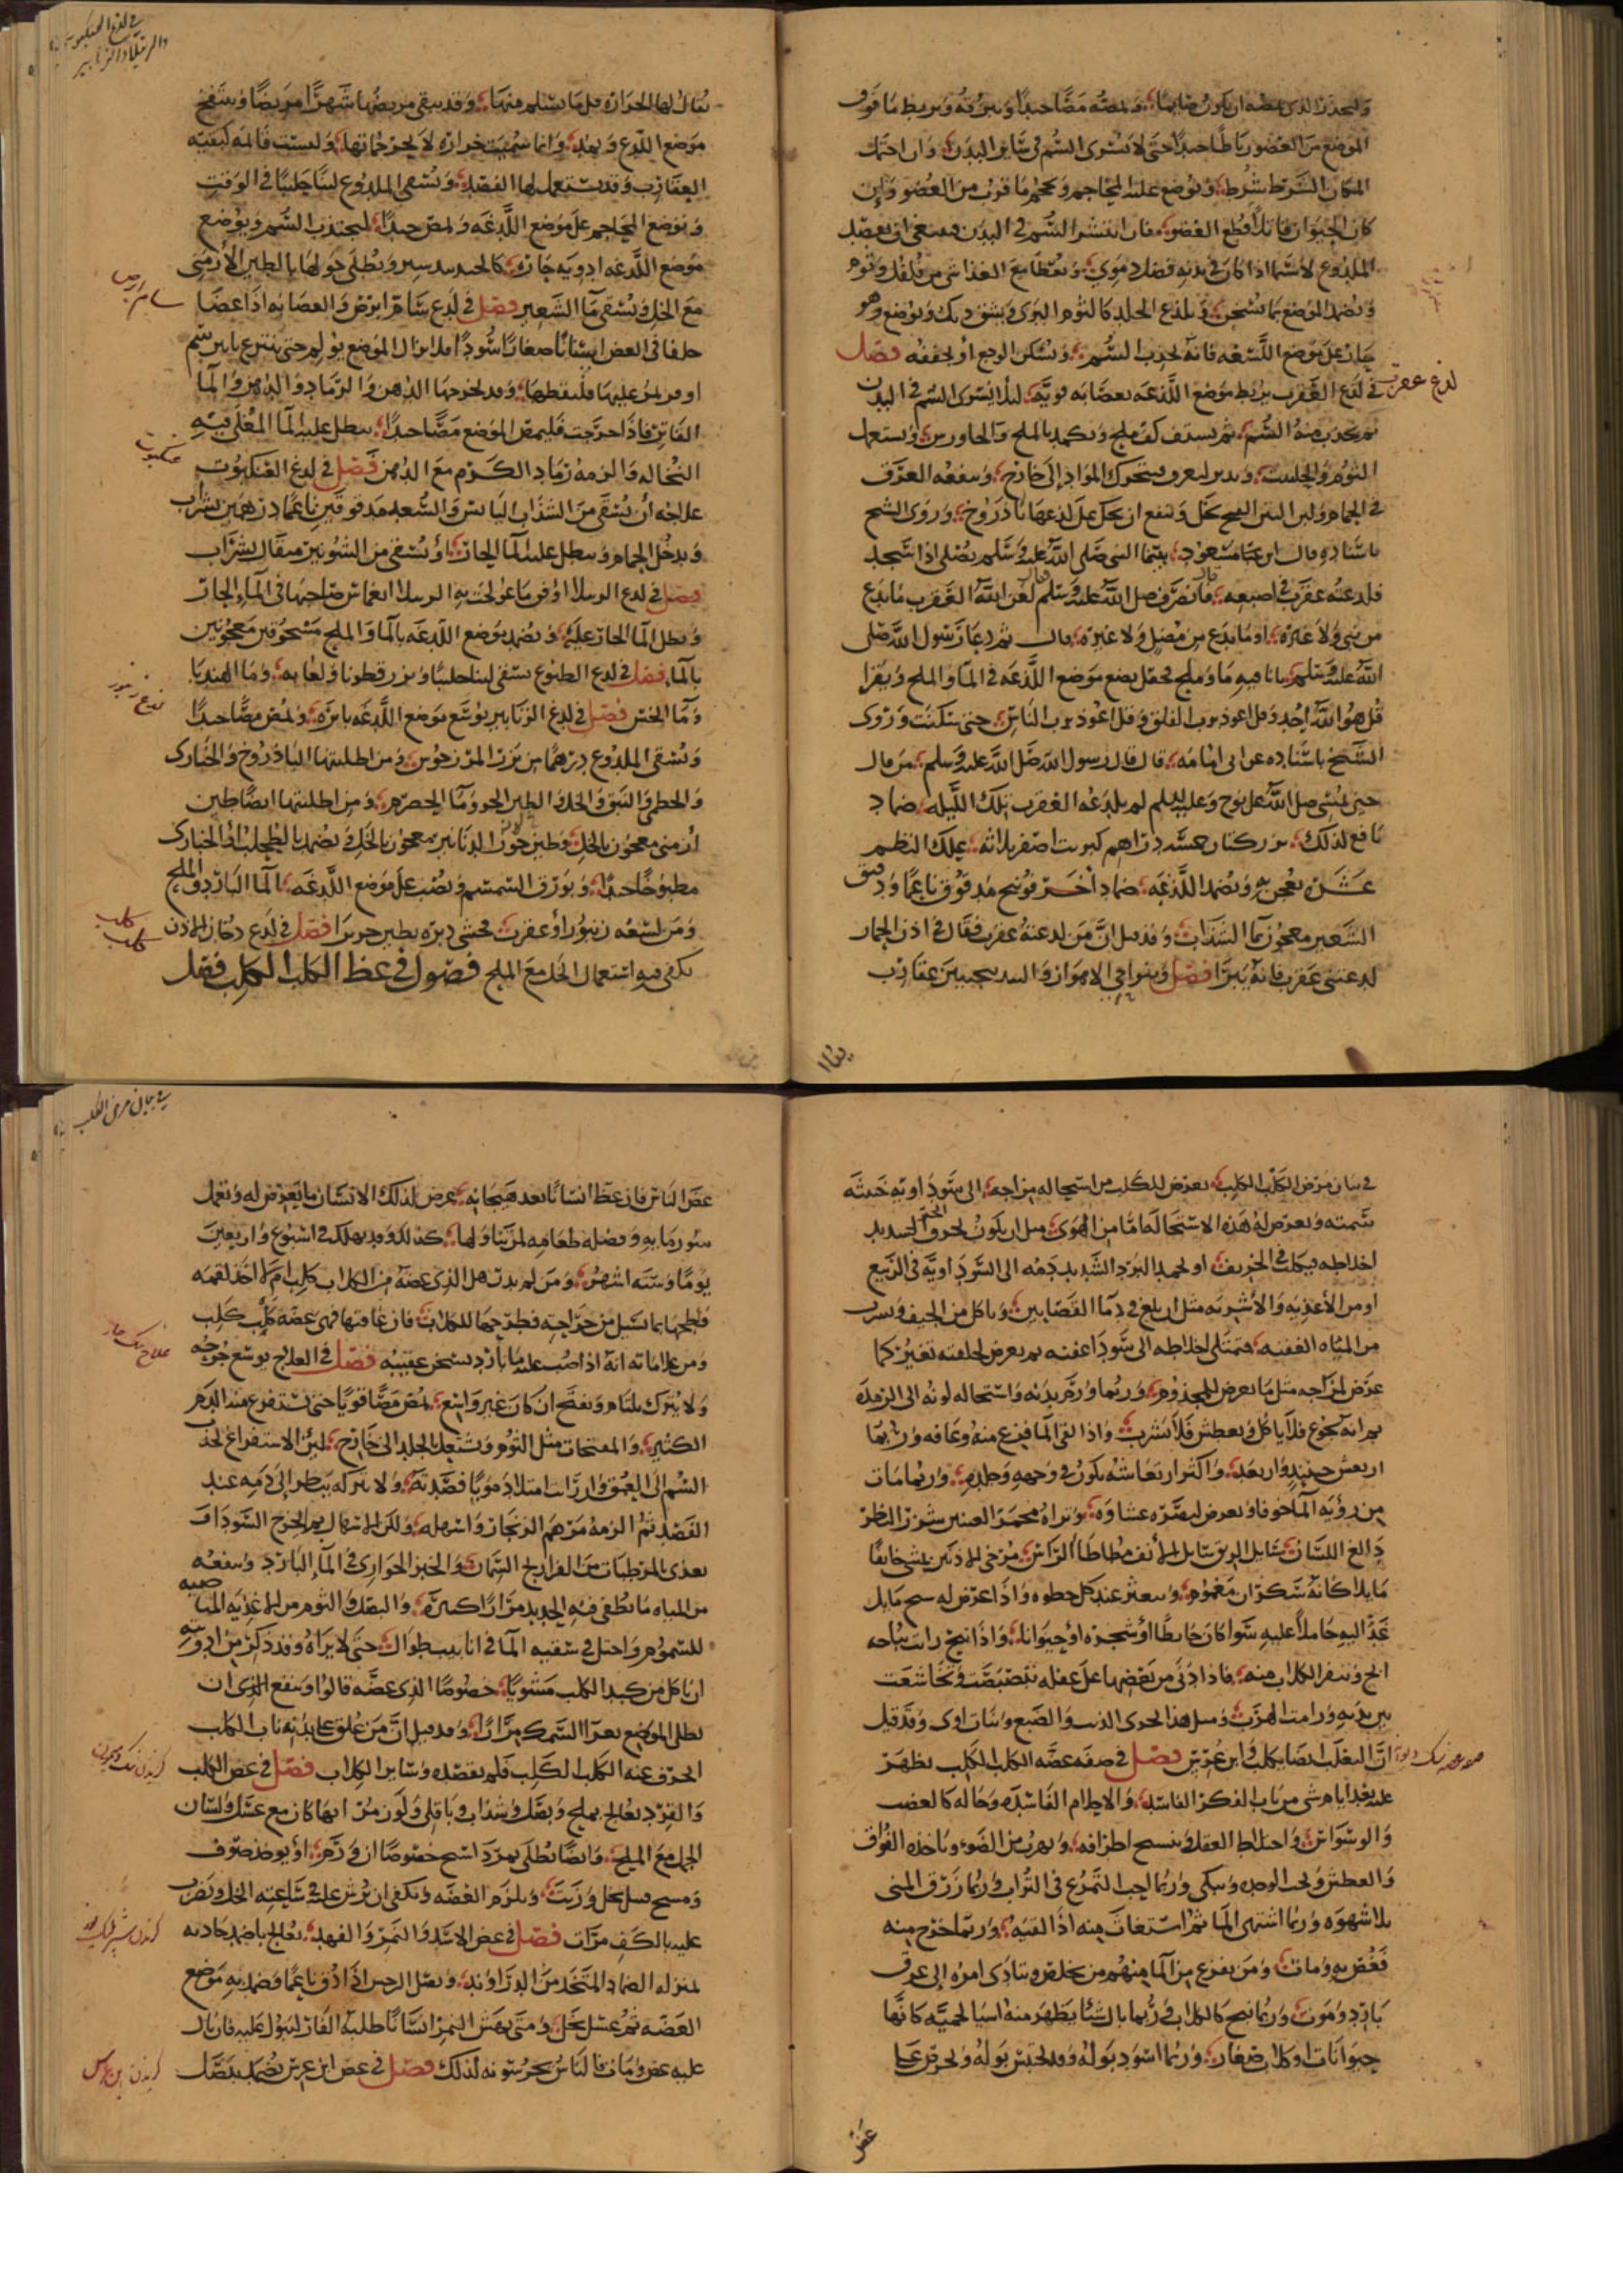 وليحذر الذى يمصه ان يكون صائما ويمصه مصا جيدا ويبزقه ويربط ما فوق
الموضع من العضو رباطا جيدا حتى لا يسرى السم فى سائر البدن وان احتمل
المكان الشرط شرط ويوضع عليه المحاجم ويحجم ما قرب من العضو وان
كان الحيوان قاتلا قطع العضو فان انتشر السم فى البدن فينبغى ان يفصد
الملدوغ لا سيما اذا كان فى بدنه فضل دموى ويعطا مع الغذا شى من فلفل وثوم
ويضمد الموضع بما يسخن ويلذع الجلد كالثوم البرى ويشق ديك ويوضع وهو
حار على موضع اللسعه فانه يجذب السم ويسكن الوجع او يخففه فصل
لدغ عقرب
فى لدغ العقرب يربط موضع اللدغه بعصابه قويه لئلا يسرى السم فى البدن
ثم يجذب منه السم ثم يستف كف ملح ويكمد بالملح والجاورس ويستعمل
الثوم والحلتيت ويدبر ليعرق فيتحرك المواد الى خارج وينفعه العرق
فى الحمام ولبن التين الفج بخل وينفع ان يحك على لدغها باذروج وروى الشيخ
باسناده قال ابن مسعود بينما النبى صلى الله عليه وسلم يصلى اذا سجد
فلدغته عقرب فى اصبعه فانصرف صلى الله عليه وسلم قال لعن الله العقرب ما تدع
من نبى ولا غيره او ما تدع من مصل ولا غيره قال ثم دعا رسول الله صلى
الله عليه وسلم باناء فيه ما وملح فجعل يضع موضع اللدغه فى الما والملح ويقرا
قل هو الله احد وقل اعوذ برب الفلق وقل اعوذ برب الناس حتى سكنت وروى
الشيخ باسناده عن ابى امامه قال قال رسول الله صلى الله عليه وسلم من قال
حين يمسى صلى الله على نوح وعليه السلم لم يلدغه العقرب تلك الليله ضماد
نافع لذلك بزر كتان خمسه دراهم كبريت اصفر ثلاثه علك البطم
عشره يعجن به ويضمد اللدغه ضماد اخر فوتنج مدقوق ناعما ودقيق
الشعير معجون بما السذاب وقد قيل ان من لدغته عقرب فقال فى اذن الحمار
لدغتنى عقرب فانه يبرا فصل وبنواحى الاهواز وعقارب
فى لدغ العنكبوت
والرتيلا والزنابير
يقال لها الجراره قل ما يسلم منها وقد يبقى مريضها شهرا مريضا وينتفخ
موضع اللدغ ويعالج وانما سميت جراره لانها تجر حماتها وليست قائمه كبقيه
العقارب وقد يستعمل لها الفصد ويسقى الملدوغ لبنا حليبا فى الوقت
ويوضع المحاجم على موضع اللدغه ويمص جيدا ليجتذب السم ويوضع
موضع اللدغه ادويه حاره كالجندبيدستر ويطلى حولها بالطين الارمنى
سام ابرص
مع الخل ويسقى ما الشعير فصل فى لدغ سام ابرص والعضايه اذا عضا
خلفا فى العض اسنانا صغارا سودا فلا يزال الموضع يؤلم حتى ينتزع بابريسم
او قز يمر عليها فيلتقطها وقد يخرجها الدهن والرماد والدهن والما
الفاتر فاذا خرجت فليمص الموضع مصا جيدا ينطل عليه الما المغلى فيه
عنكبوت
النخاله والزمه رماد الكرم مع الدهن فصل فى لدغ العنكبوت
علاجه ان يسقى من السذاب اليابس والسعد مدقوقين ناعما درهمين بشراب
ويدخل الحمام وينطل عليه الما الحار او يسقى من الشونيز مثقال بشراب
فصل فى لدغ الرتيلا اوفق ما عولجت به الرتيلا انغماس صاحبها فى الماء الحار
ونطل الما الحار عليه ويضمد موضع اللدغه بالما والملح مسحوقين معجونين
لدغ زنبور
بالما فصل فى لدغ الطبوع يسقى لبنا حليبا وبزر قطونا ولعابه وما الهندبا
وما الخس فصل فى لدغ الزنابير يوسع موضع اللدغه بابره ويمص مصا جيدا
ويسقى الملدوغ درهما من بزر المرزنجوش ومن اطليتها الباذروج والخبازى
والخطمى والنبق والخل والطين الحر وما الحصرم ومن اطليتها ايضا طين
ارمنى معجون بالخل وطين كور الزنابير معجون بالخل ويضمد بالطحلب او الخبازى
مطبوخا جيدا وبورق السمسم ويصب على موضع اللدغه الما البارد والملح
كلب كلب
ومن لسعه زنبور او عقرب فحشى دبره بطين حر برا فصل فى لدغ دخال الاذن
يكفى فيه استعمال الخل مع الملح فصول فى عظ الكلب الكلب فصل
فى بيان مرض الكلب الكلب يعرض للكلب من استحاله مزاجه الى سوداويه خبيثه
سميته ويعرض له هذه الاستحاله اما من الهوى مثل ان يكون يحرق الحر الشديد
اخلاطه فيكلب فى الخريف او يجمد البرد الشديد دمه الى السوداويه فى الربيع
او من الاغذيه والاشربه مثل ان يلغ فى دما القصابين وياكل من الجيف ويشرب
من المياه العفنه فتميل اخلاطه الى سودا عفنه ثم يعرض لخلقته تغير كما
عرض لمزاجه مثل ما يعرض للمجذوم وربما ورم بدنه واستحاله لونه الى الرمده
ثم انه يجوع فلا ياكل ويعطش فلا يشرب واذا لقى الما فزع منه وعافه وربما
ارتعش حينئذ وارتعد واكثر ارتعاشه يكون فى وجهه وجلده وربما مات
من رؤيه الما خوفا ويعرض لبصره عشاوه وتراه محمر العينين شزر النظر
دالع اللسان سايل الريق سايل الانف مطاطأ الراس مرخى الاذنين يمشى خايفا
مايلا كانه سكران مغموم ويتعثر عند كل خطوه واذا عرض له شبح مايل
عدا اليه حاملا عليه سوا كان حايطا او شجره او حيوانا واذا نبح رايت نباحه
ابح وتنفر الكلاب منه فاذا دنى من بعضها على غفله تبصبصت وتخاشعت
بين يديه ورامت الهرب ومثل هذا الذيب والضبع وبنات اوى وقد قيل
ان الثعلب ايضا يكلب وابن عرس فصل فى صفه عضه الكلب الكلب يظهر
عليه بعد ايام شى من باب الفكر الفاسده والاحلام الفاسده وحاله كالغضب
والوسواس واختلاط العقل وتشنج اطرافه ويهرب من الضوء وياخذه الفواق
والعطش ويحب الوحده ويبكى وربما احب التمرغ فى التراب وربما زرق المنى
بلا شهوه وربما اشتهى الما ثم استغاث منه اذا لقيه وربما جرع منه
فغص به ومات ومن يفزع من الما منهم من يخلص ويتادى امره الى عرق
بارد وموت وربما نبح كالكلاب وربما بال شيا يظهر منه اشيا لحميه كانها
حيوانات او كلاب صغار وربما اسود بوله وقد يحتبس بوله ويحرص على
عض
فى بيان مرض الكلب
عض الناس فان عظ انسانا بعد هيجانه عرض لذلك الانسان ما يعرض له ويعمل
سور مايه وفضله طعامه لمن يتناولها كذلك وقد يهلك فى اسبوع واربعين
يوما وسته اشهر ومن لم يدر هل الذى عضه من الكلاب كلب ام لا اخذ لقمه
فلطخها بما يسيل من جراحته فطرحها للكلاب فان عافتها فهى عضه كلب كلب
ومن علاماته انه اذا صب عليه ما بارد يسخن عقيبه فصل فى العلاج يوسع جرحه
ولا يترك يلتام ويفتح ان كان غير واسع يمص مصا قويا حتى يستفرغ منه الدم
الكثير والمفتحات مثل الثوم ويشتغل الجلد الى خارج لين الاستفراغ يجذب
السم الى العمق وان رايت امتلا دمويا فصدته ولا تتركه ينظر الى دمه عند
الفصد ثم الزمه مرهم الزنجار واسهله ولكن الاسهال بما يخرج السودا ف
يغذى بالمرطبات من الفراريج السمان والخبز الحوارى فى الماء البارد وينفعه
من المياه ما يطفى فيه الحديد مرارا كثيره والبصل والثوم من الاغذيه المناصبه
للسموم واحتل فى سقيه الما فى انابيب طوال حتى لا يراه وقد ذكر من ادويته
ان ياكل من كبد الكلب مشويا خصوصا الذى عضه قالوا وينفع الذى ان
يطلى الموضع بغرا السمك مرارا وقد قيل ان من علق على بدنه ناب الكلب
انحرف عنه الكلب الكلب فلم يقصده وساير الكلاب فصل فى عض الكلب
والقرد يعالج بملح وبصل وسذاب وباقلى ولوز مر ايها كان مع عسل ولسان
الحمل مع الملح وايضا يطلى بمرداسنج خصوصا ان ورم او يوخذ صوف
ومسح فبل بخل وزيت ويلزم العضه ويكفى ان يرش عليه فى ساعته الخل ويضرب
عليه بالكف مرات فصل فى عض الاسد والنمر والفهد يعالج باضمده جاذبه
بمنزله الضماد المتخذ من الزراوند وبصل النرجس اذا دق ناعما وضمد به موضع
العضه ثم غسل بخل ومتى نهش النمر انسانا طلبه الفار ليبول عليه فان بال
عليه عفن ومات فالناس يحرسونه لذلك فصل فى عض ابن عرس يضمد ببصل